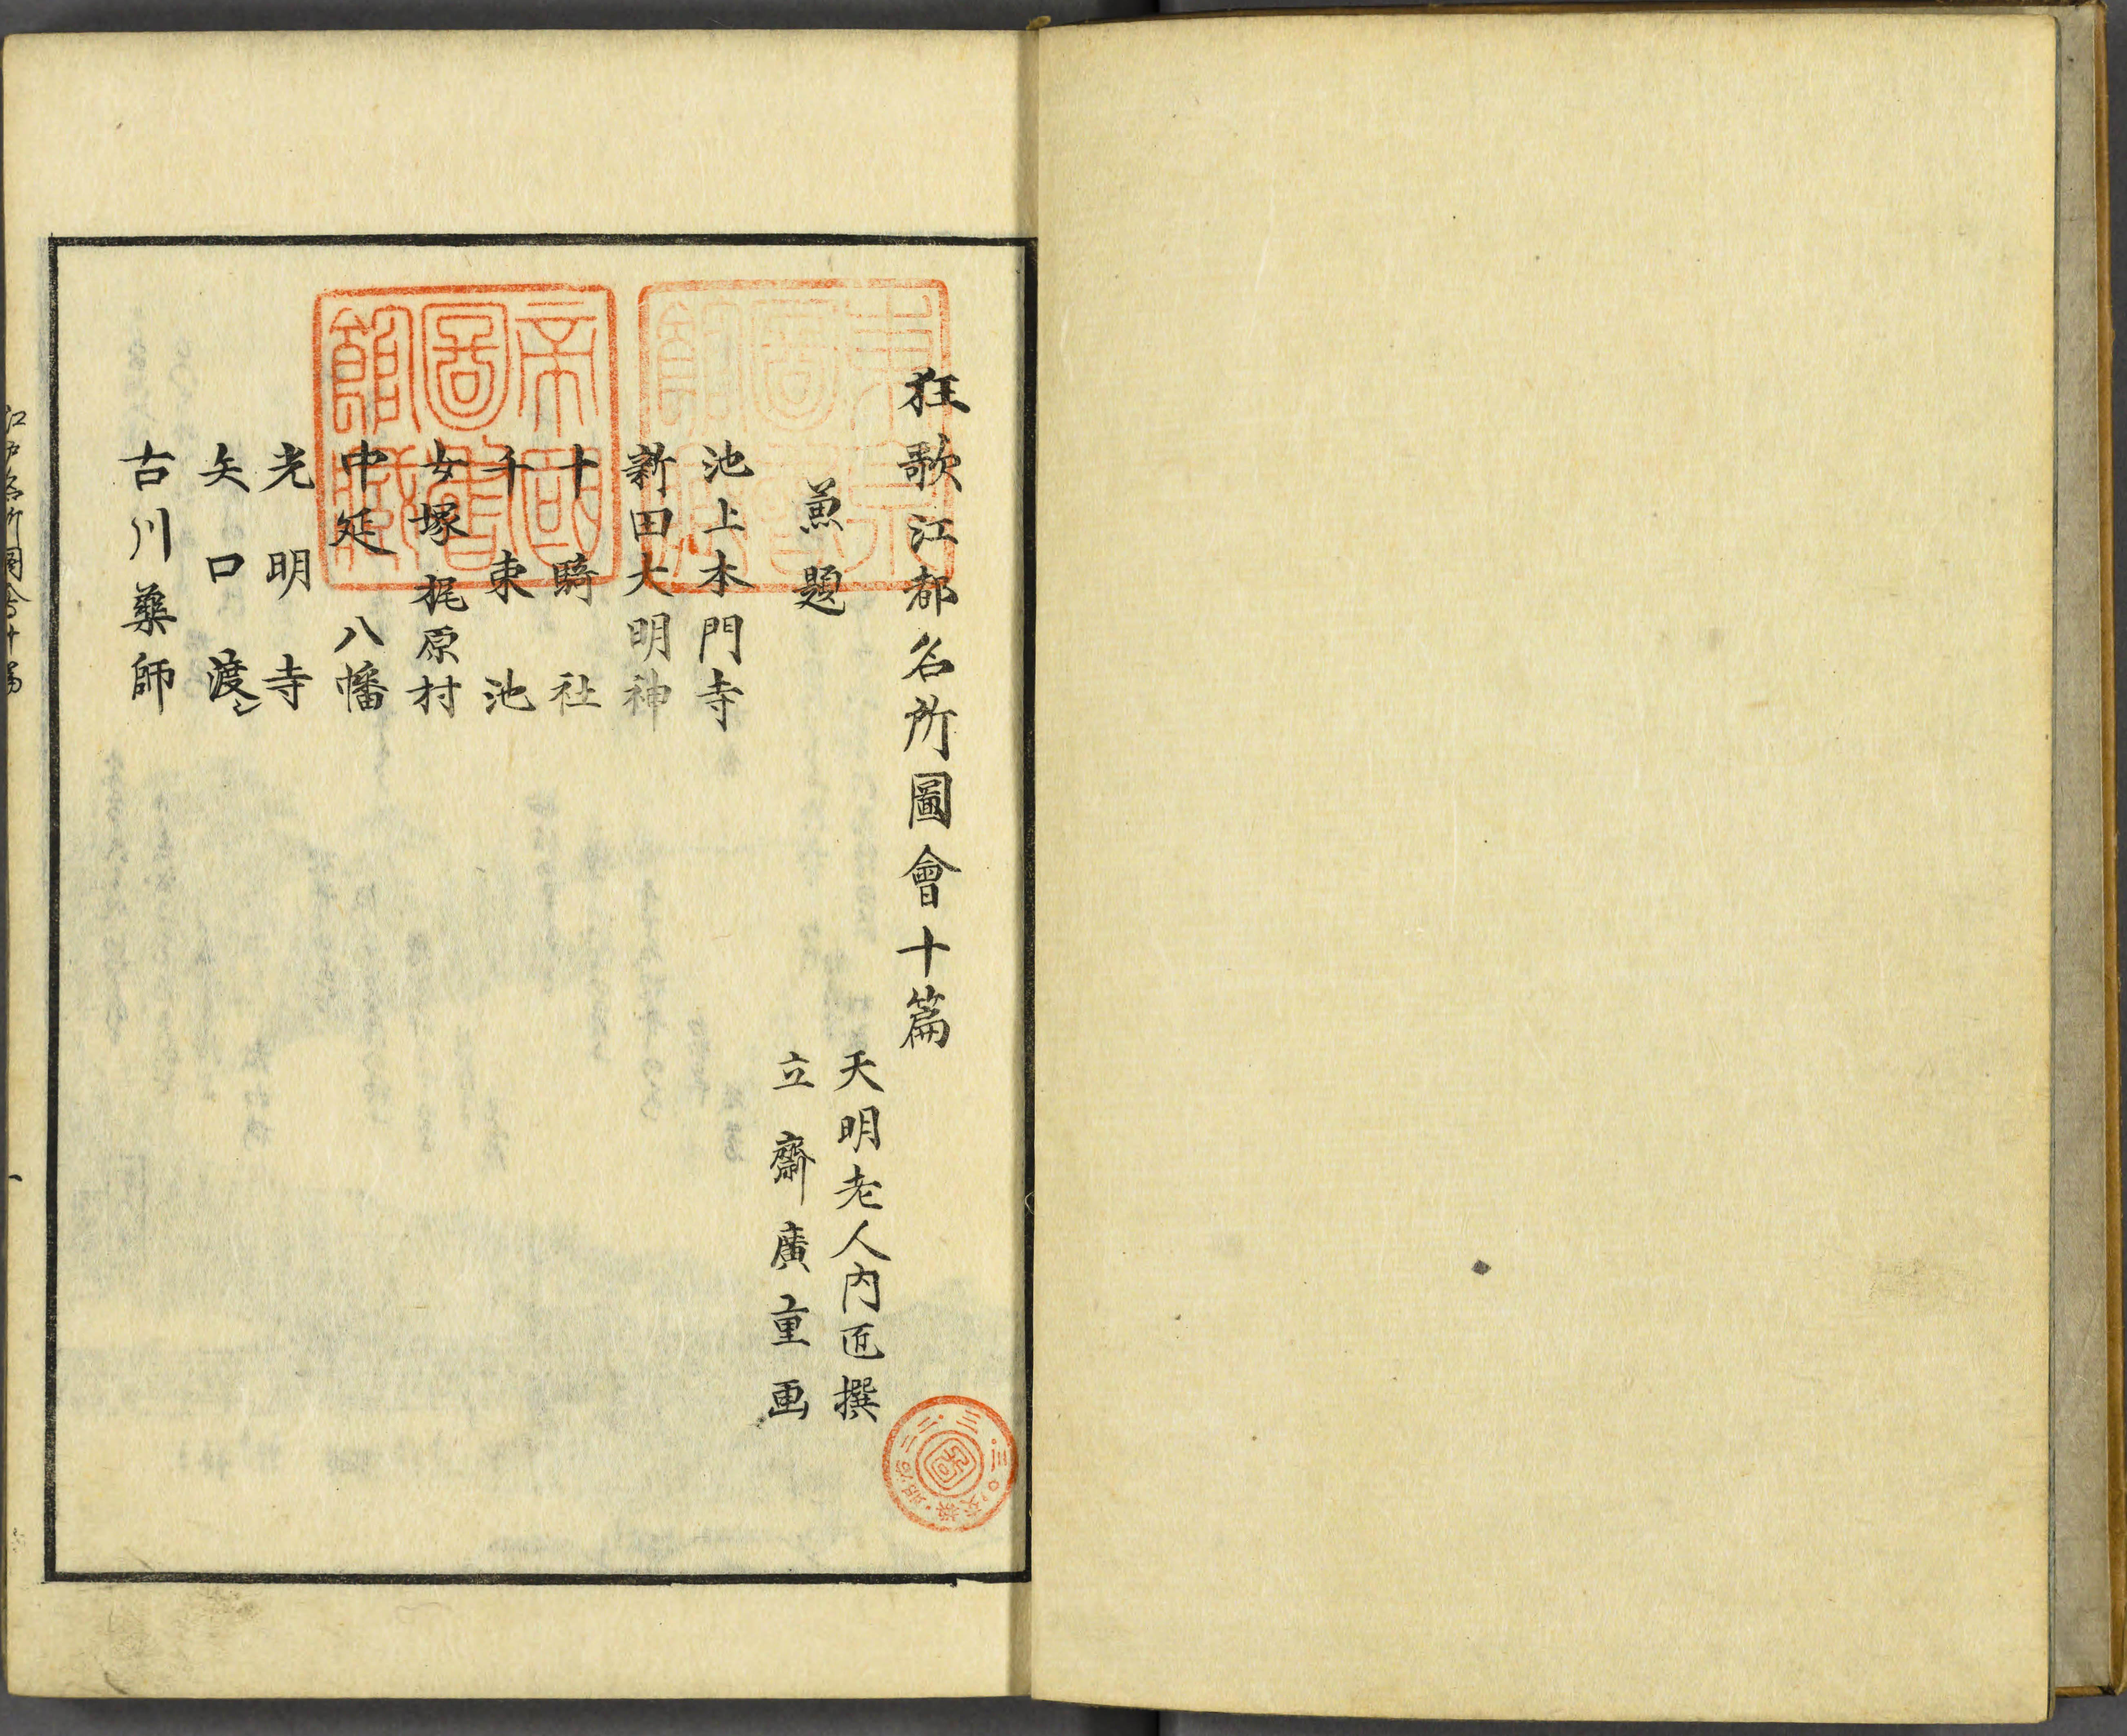 狂歌江都名所圖會十篇
天明老人内匠撰
立齋廣重画
兼題
池上本門寺
新田大明神
十騎社
千束池
女塚 梶原村
中延八幡
光明寺
矢口渡シ
古川藥師
帝國圖書館藏
東京圖書館藏